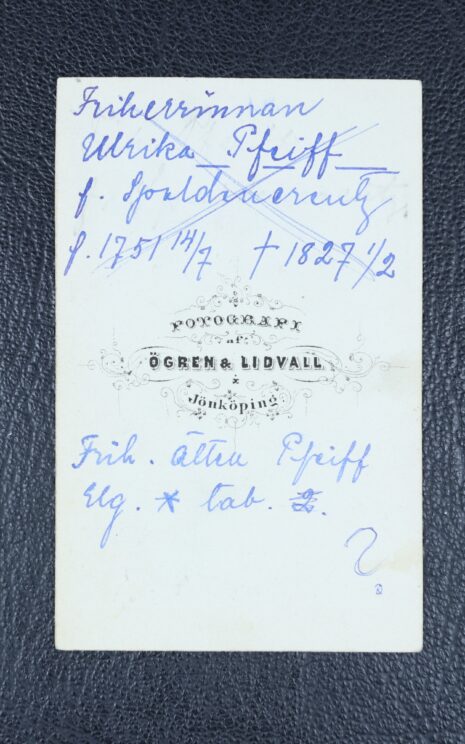 Friherrinnan
Ulrika Pfeiff
f. Spaldencreutz
f. 1751 14/7 † 1827 1/2
FOTOGRAFI
af
ÖGREN & LIDVALL
i
Jönköping.
Frih. ätten Pfeiff
Elg. * tab. 2.
?